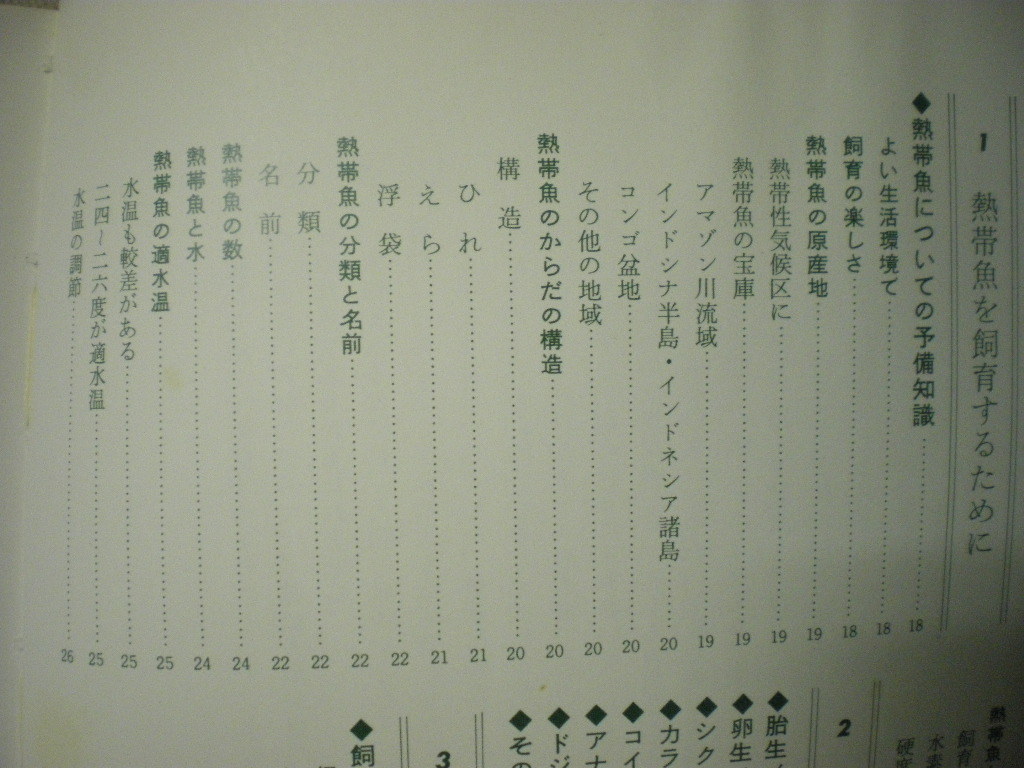 1 熱帯魚を飼育するために
◆熱帯魚についての予備知識 18
よい生活環境で 18
飼育の楽しさ 18
熱帯魚の原産地 19
熱帯性気候区に 19
熱帯魚の宝庫 19
アマゾン川流域 19
インドシナ半島・インドネシア諸島 20
コンゴ盆地 20
その他の地域 20
熱帯魚のからだの構造 20
構造 20
ひれ 21
えら 21
浮袋 22
熱帯魚の分類と名前 22
分類 22
名前 22
熱帯魚の数 24
熱帯魚と水 24
熱帯魚の適水温 25
水温も較差がある 25
二四〜二六度が適水温 25
水温の調節 26
熱帯魚
飼育
水素
硬度
2
◆胎生
◆卵生
◆シク
◆カラ
◆コイ
◆アナ
◆ドジ
◆その
3
◆飼